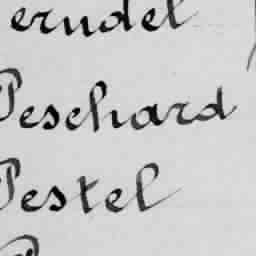 erndel
Peschard
Pestel